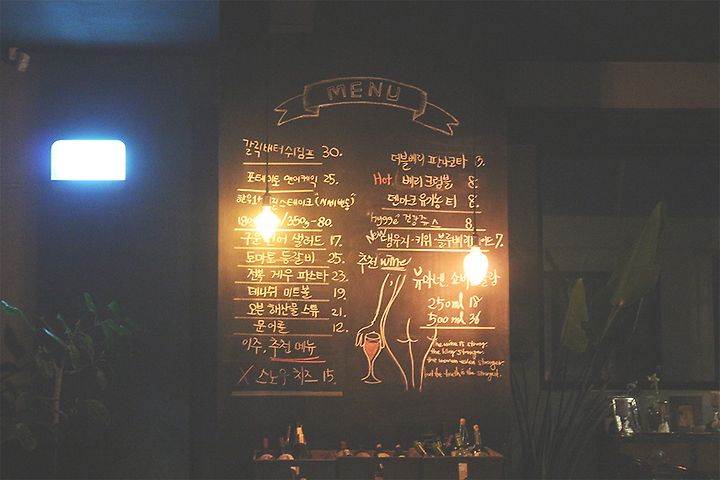 MENU
갈릭버터쉬림프 30.
포테이토 연어케익 25.
/350g-80.
구운연어 샐러드 17.
토마토 등갈비 25.
전복 게우 파스타 23.
데니쉬 미트볼 19.
오븐 해산물 스튜 21.
문어롤 12.
이주, 추천 메뉴
X 스노우 치즈 15.
더블베리 판나코타 3.
Hot 베리크럼블 8.
덴마크 유기농 티 8.
"hygge" 건강쥬스 8.
New 냉유지·키위·블루베리 7.
추천 wine
250ml 18
500ml 36
The wine is strong.
the king stronger.
the women even stronger
but the truth is the strongest.